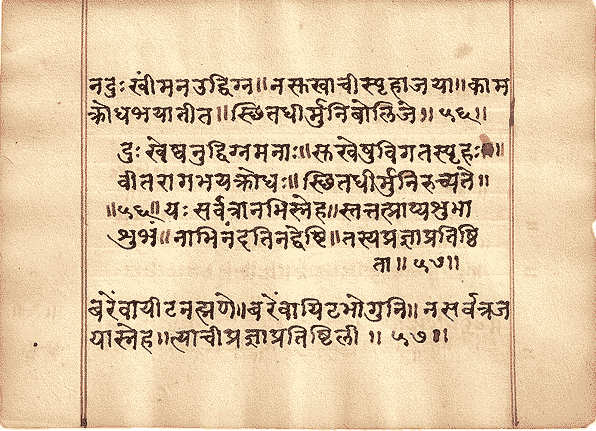 नदुःखींमनउद्विग्न॥नसुखाचीस्पृहाजया॥काम
क्रोधभयातीत॥स्थितधीर्मुनिबोलिजे॥५६॥
दुःखेष्वनुद्विग्नमनाः॥सुखेषुविगतस्पृहः॥
वीतरागभयक्रोधः॥स्थितधीर्मुनिरुच्यते॥
॥५६॥यःसर्वत्रानभिस्नेह॥स्तत्तत्प्राप्यशुभा
शुभं॥नाभिनंदतिनद्वेष्टि॥तस्यप्रज्ञाप्रतिष्ठि
ता॥५७॥
बरेंवायीटनह्मणे॥बरेंवायिटभोगुनि॥नसर्वत्रज
यास्नेह॥त्याचीप्रज्ञाप्रतिष्ठिली॥५७॥